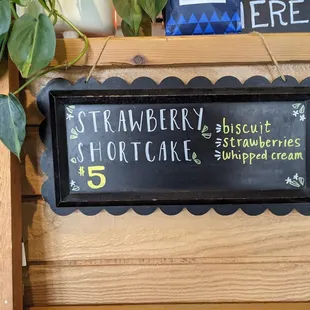 ERE
STRAWBERRY
SHORTCAKE
$5
biscuit
strawberries
whipped cream